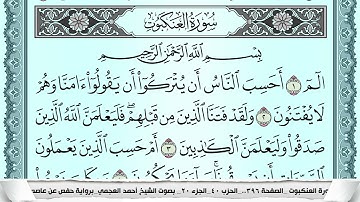 سُورَةُ الْعَنكَبُوتِ
بِسْمِ اللَّهِ الرَّحْمَٰنِ الرَّحِيمِ
الٓمٓ ١ أَحَسِبَ النَّاسُ أَن يُتْرَكُوٓا۟ أَن يَقُولُوٓا۟ ءَامَنَّا وَهُمْ
لَا يُفْتَنُونَ ٢ وَلَقَدْ فَتَنَّا الَّذِينَ مِن قَبْلِهِمْ فَلَيَعْلَمَنَّ اللَّهُ الَّذِينَ
صَدَقُوا۟ وَلَيَعْلَمَنَّ الْكَٰذِبِينَ ٣ أَمْ حَسِبَ الَّذِينَ يَعْمَلُونَ
العنكبوت .. الصفحة ٣٩٦.. الحزب ٤٠ .الجزء ٢٠ .. بصوت الشيخ أحمد العجمي .برواية حفص عن عاصم